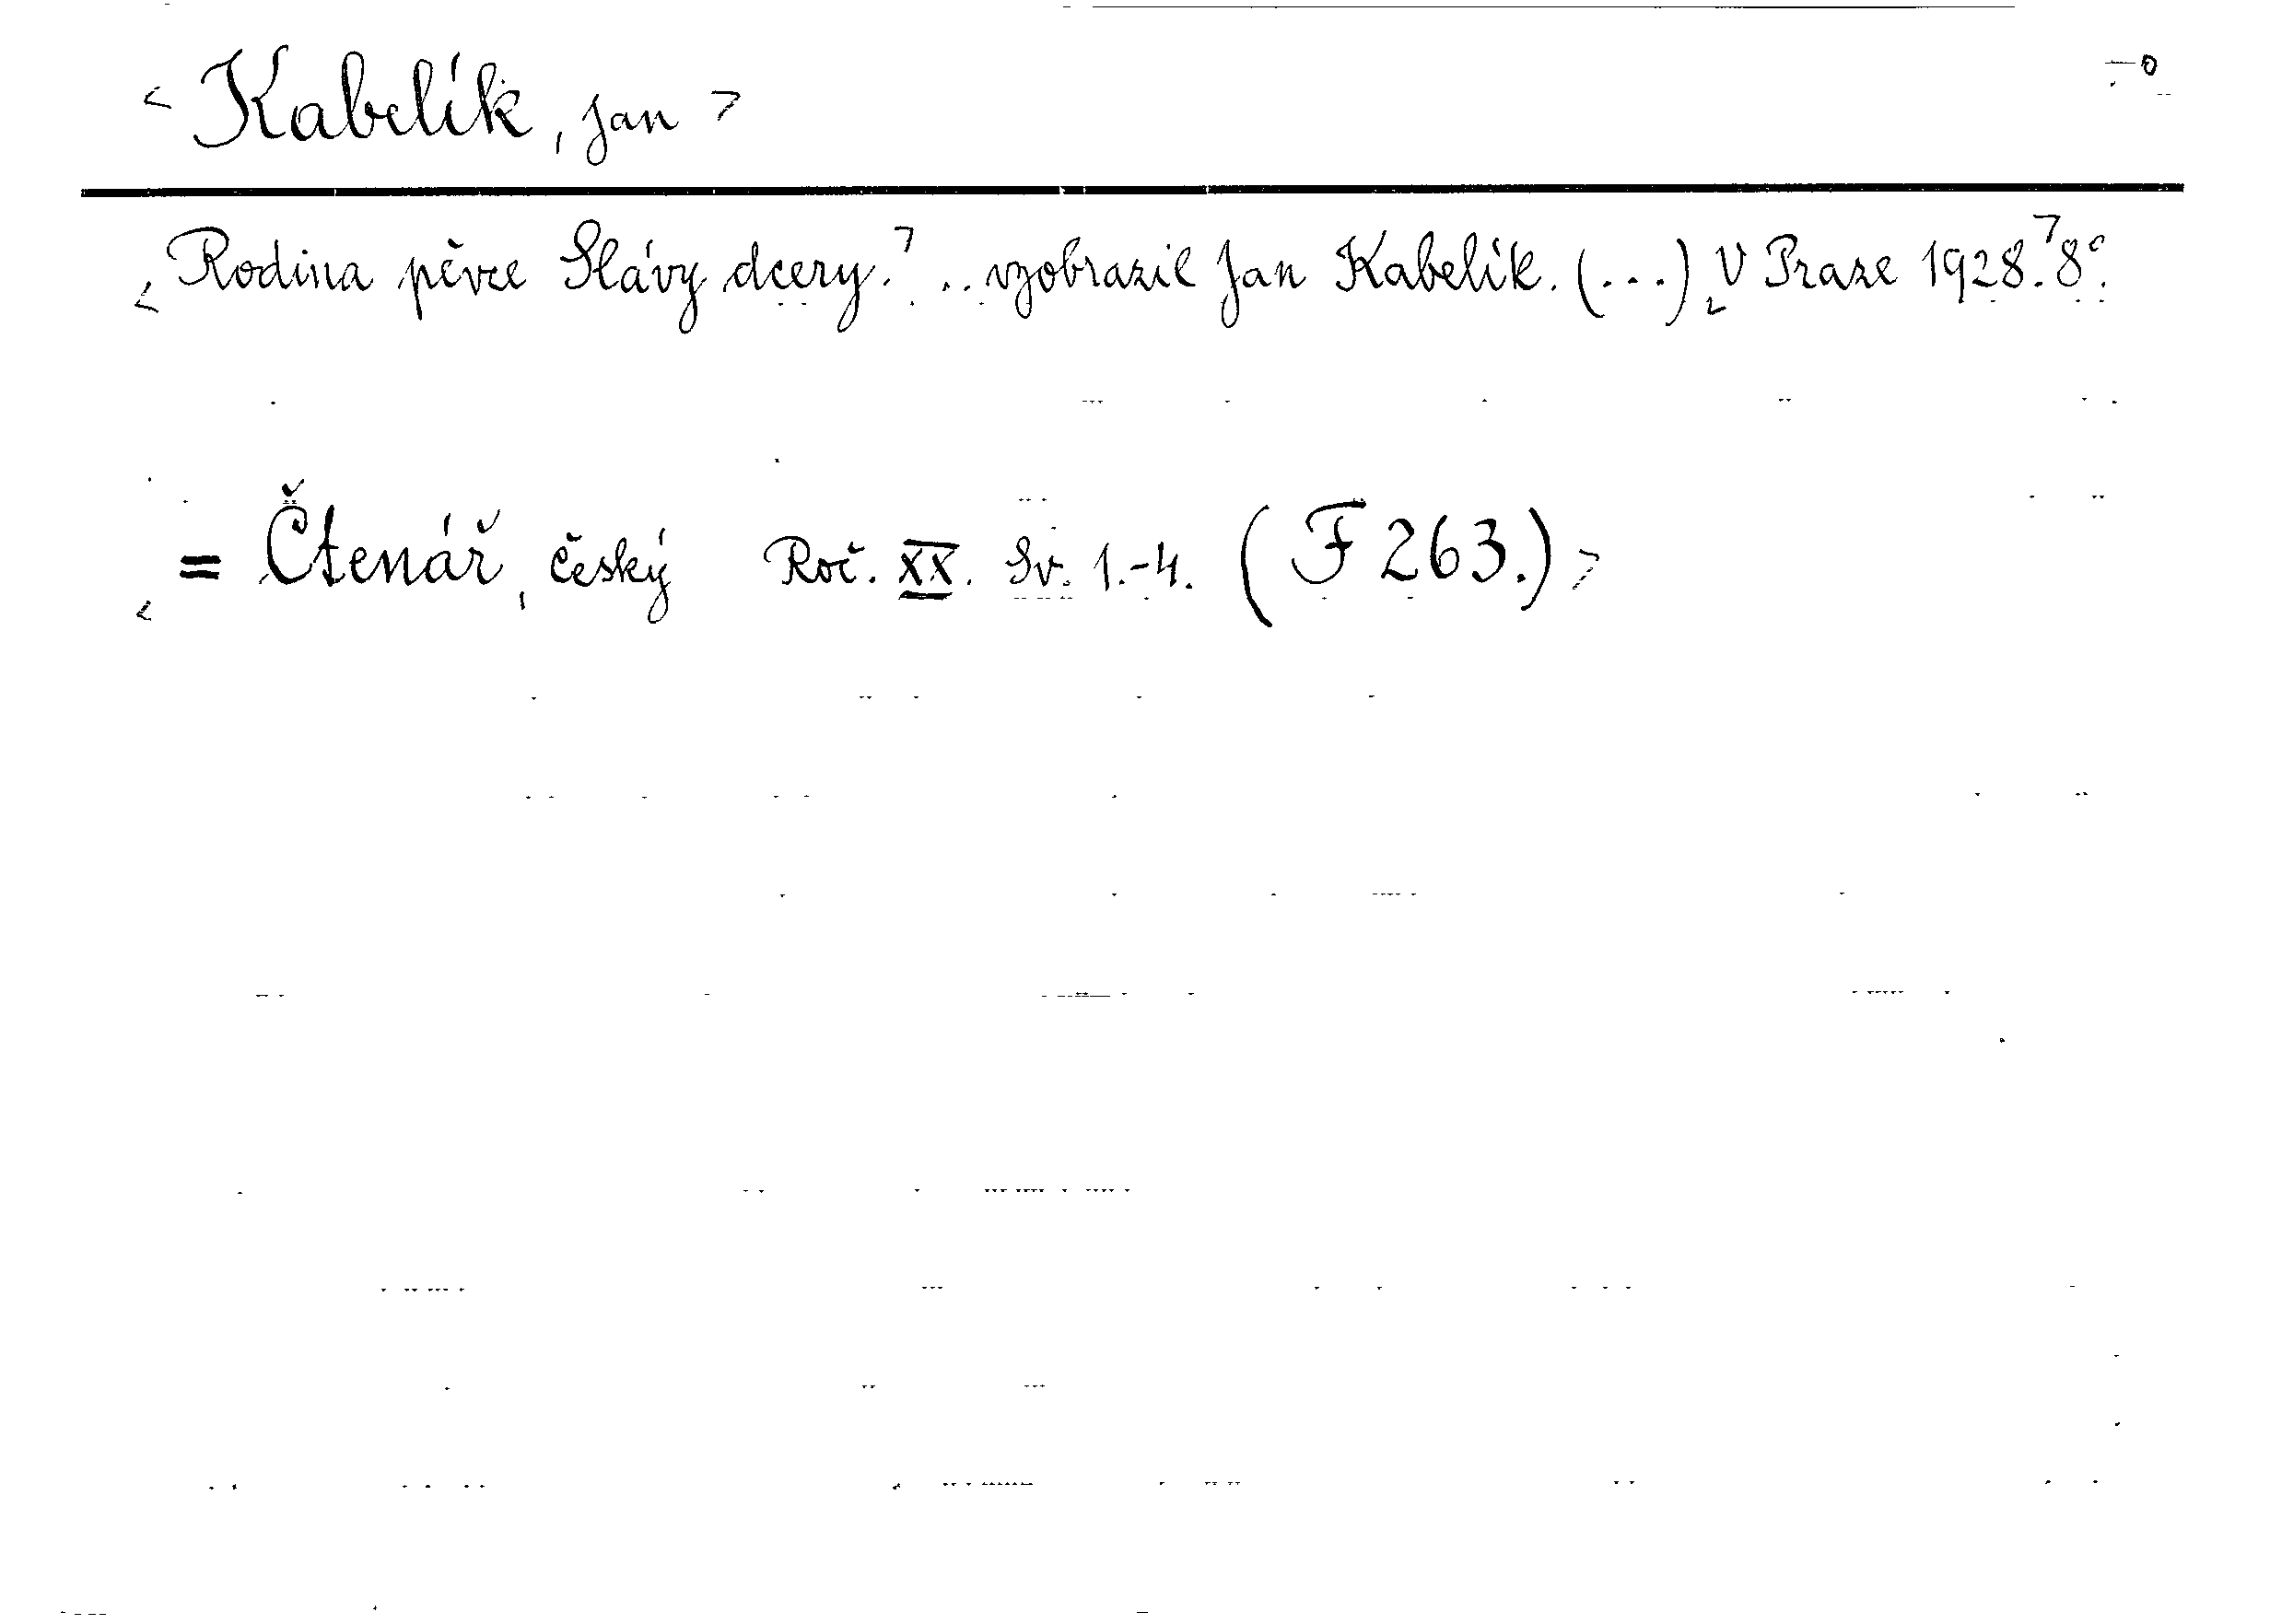 < Kabelík, Jan >
< Rodina pěvce Slávy dcery.> .. vzobrazil Jan Kabelík. (...) < V Praze 1928.> 8°.
< = Čtenář, český Roč. XX. Sv. 1.-4. (F 263.) >